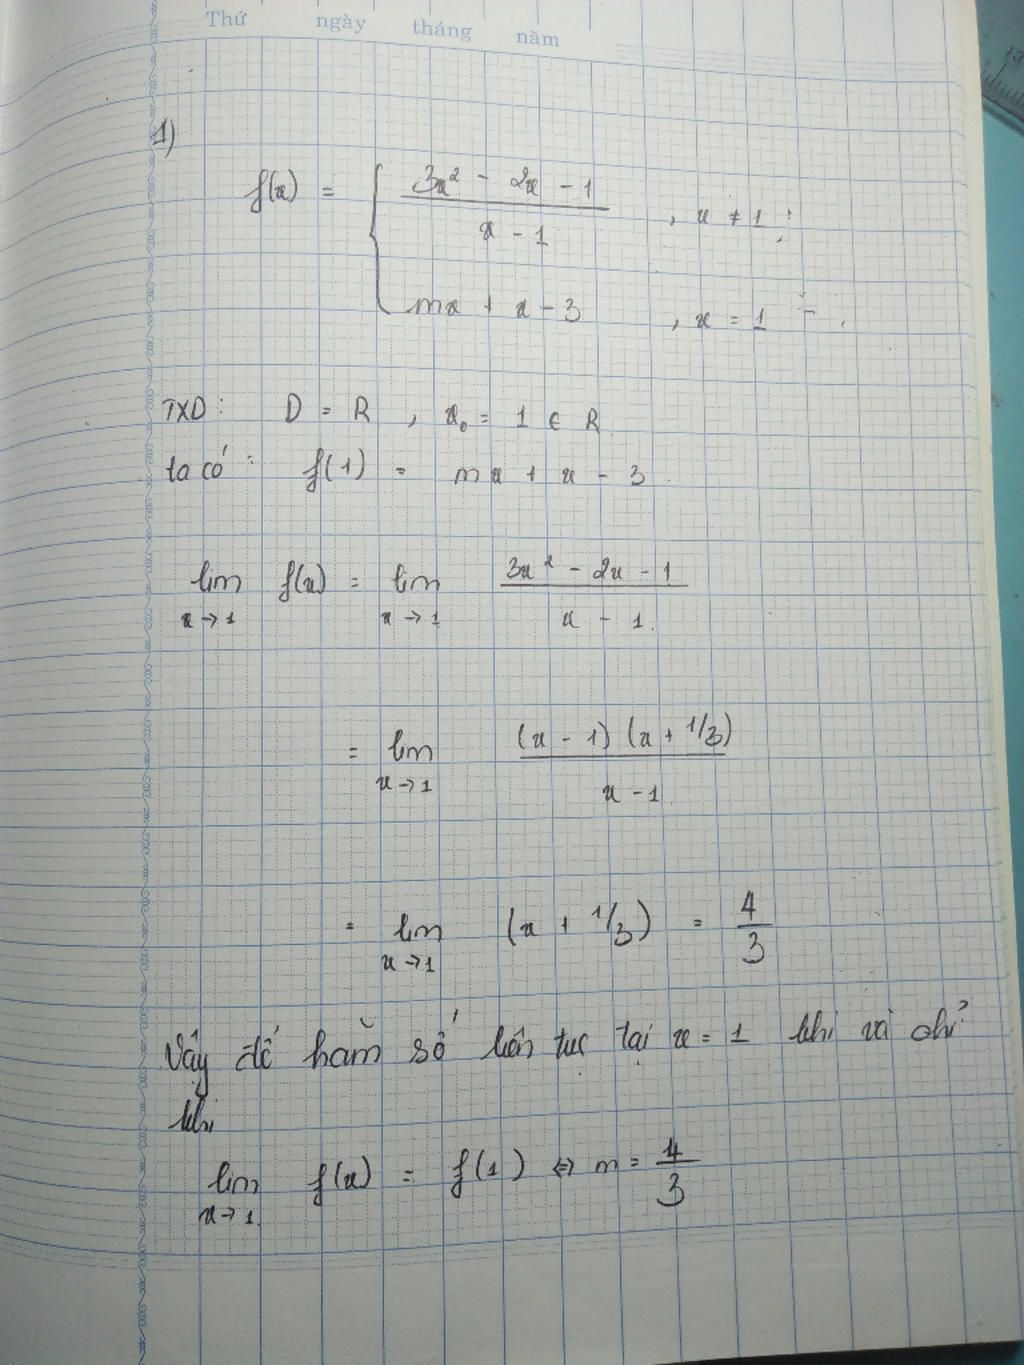 Thứ ngày tháng năm
1)
f(x) = { (3x² - 2x - 1)/(x - 1) , x ≠ 1 ;
mx + x - 3 , x = 1
TXD : D = R , x₀ = 1 ∈ R
ta có : f(1) = mx + x - 3
lim x→1 f(x) = lim x→1 (3x² - 2x - 1)/(x - 1)
= lim x→1 (x - 1) (x + 1/3)/(x - 1)
= lim x→1 (x + 1/3) = 4/3
Vậy để hàm số liên tục tại x = 1 khi và chỉ
khi
lim x→1 f(x) = f(1) ⇔ m = 4/3